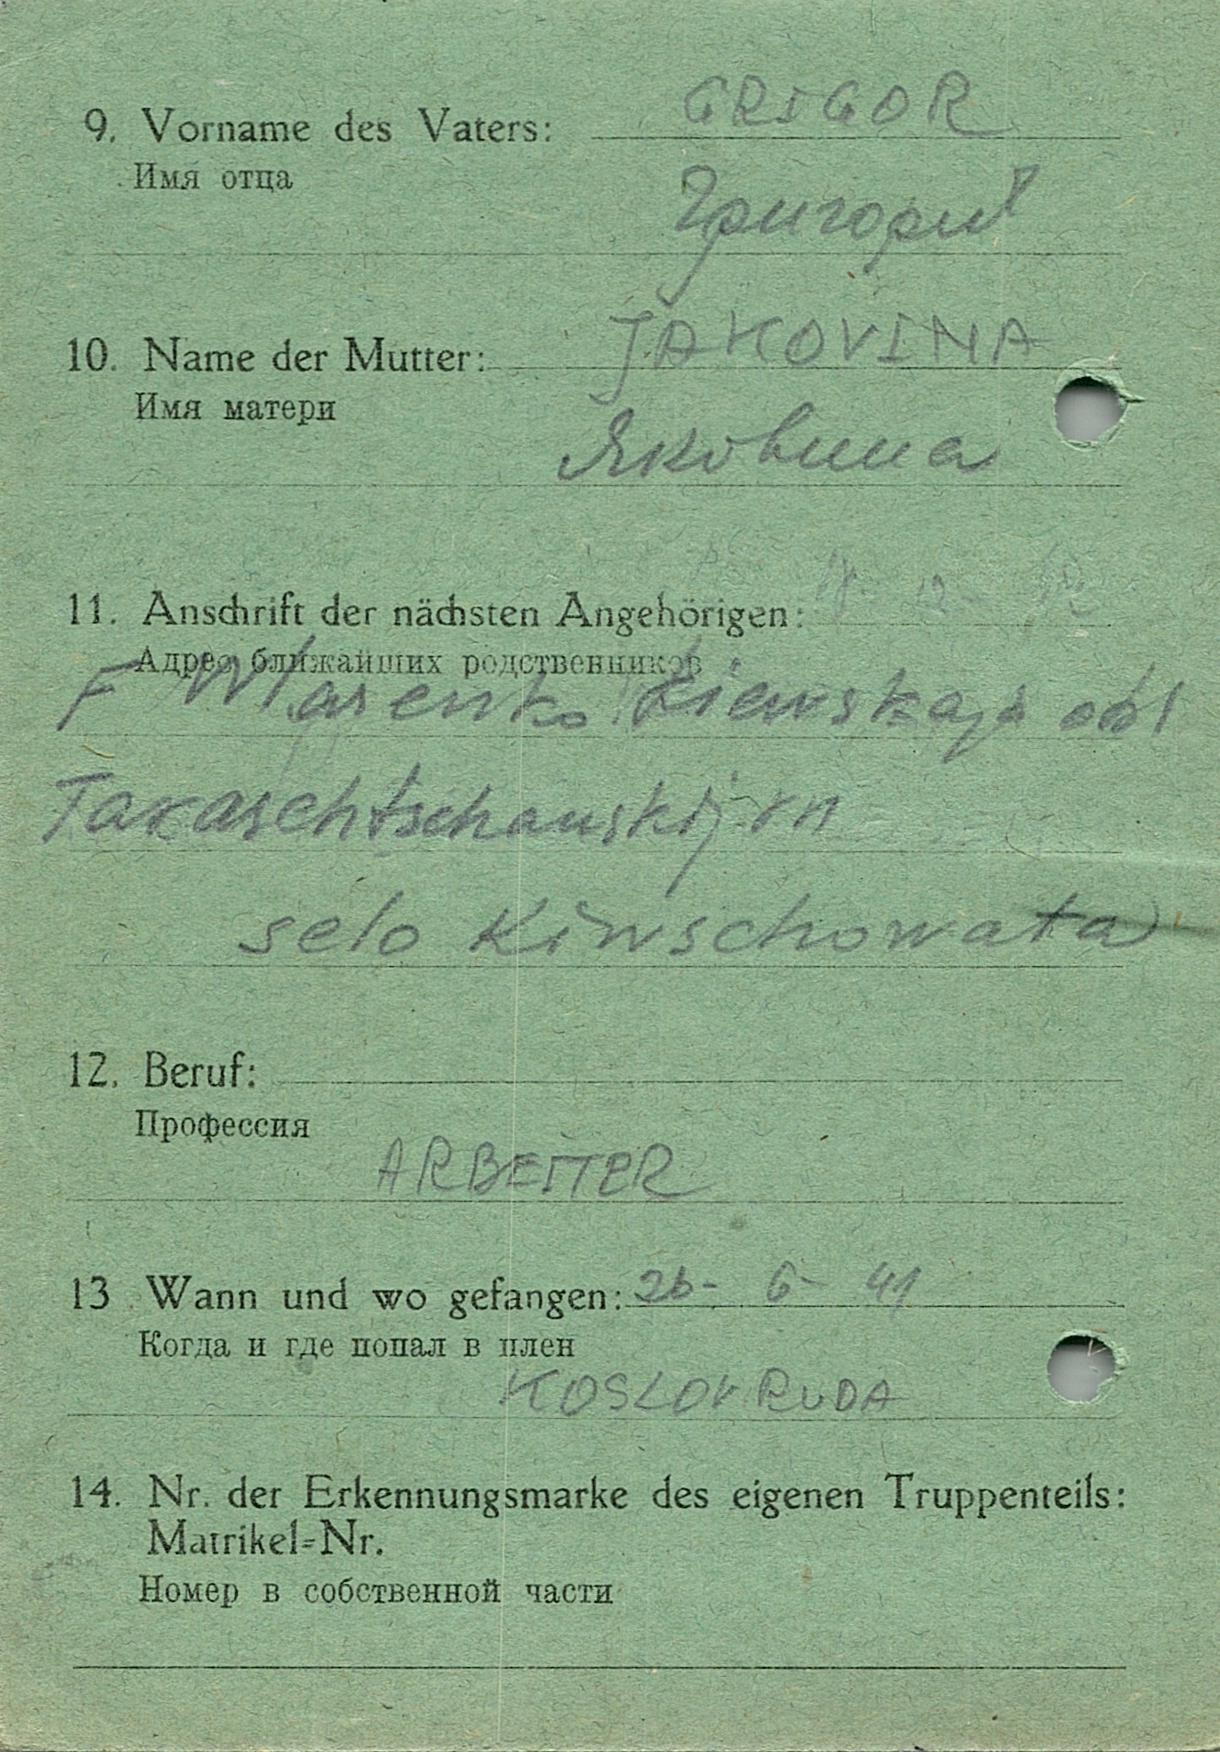 9. Vorname des Vaters: GRIGOR
Имя отца
Григорий
10. Name der Mutter: JAKOVINA
Имя матери
Яковина
11. Anschrift der nächsten Angehörigen:
Адрес ближайших родственников
F Wlasenko Kiewskaja obl
Taraschtschanskij rn
selo Kiwschowata
12. Beruf:
Профессия
ARBEITER
13 Wann und wo gefangen: 26- 6- 41
Когда и где попал в плен
KOSLOV RUDA
14. Nr. der Erkennungsmarke des eigenen Truppenteils:
Matrikel-Nr.
Номер в собственной части